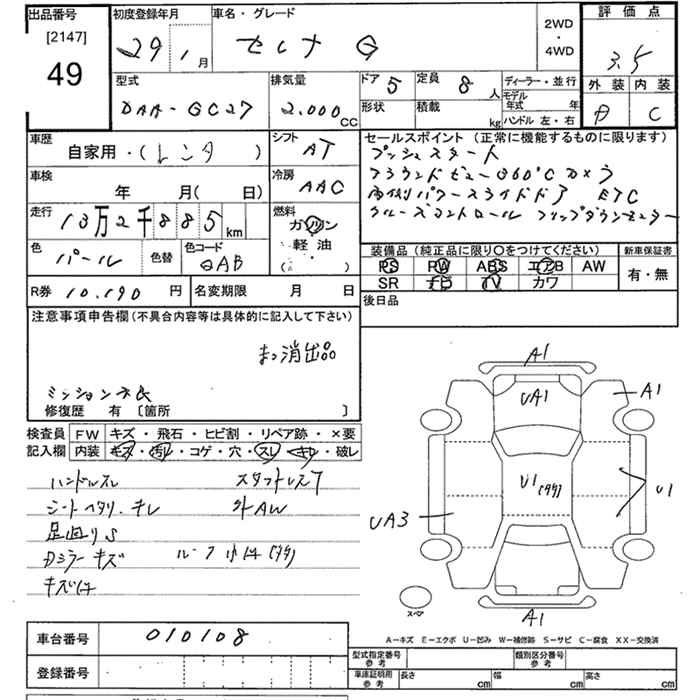 出品番号
[2147]
49
初度登録年月
29 1 月
車名・グレード
セレナ G
2WD
・
4WD
評価点
3.5
外装 内装
D C
型式
DAA-GC27
排気量
2.000 CC
ドア 5
定員 8 人
形状
積載 kg
ディーラー・並行
モデル
年式 年
ハンドル 左・右
車歴
自家用・(レンタ )
シフト
AT
車検
年 月( 日)
冷房
AAC
走行
13万2千885 km
燃料
ガソリン
軽油
( ・ )
色
パール
色替
色コード
QAB
R券 10.190 円
名変期限 月 日
セールスポイント (正常に機能するものに限ります)
プッシュスタート
アラウンドビュー360°Cカメラ
両側パワースライドドア ETC
クルーズコントロール フリップダウンモニター
装備品(純正品に限り〇をつけてください)
PS PW ABS エアB AW
SR ナビ TV カワ
新車保証書
有・無
後日品
注意事項申告欄(不具合内容等は具体的に記入して下さい)
まっ消出品
ミッション不良
修復歴 有 [箇所 ]
検査員
記入欄
FW キズ・飛石・ヒビ割・リペア跡・×要
内装 キズ・汚レ・コゲ・穴・スレ・キレ・破レ
ハンドルスレ スタットレス7
シートヘタリ、キレ 外AW
足廻りS
Dミラーキズ ルーフ小凹(多)
A1
UA1
A1
U1
(多)
U1
UA3
A1
スペア
A-キズ E-エクボ U-凹み W-補修跡 S-サビ C-腐食 XX-交換済
車台番号 010108
登録番号
型式指定番号
参考
類別区分番号
参考
車庫証明用
参考
長さ cm 幅 cm 高さ cm